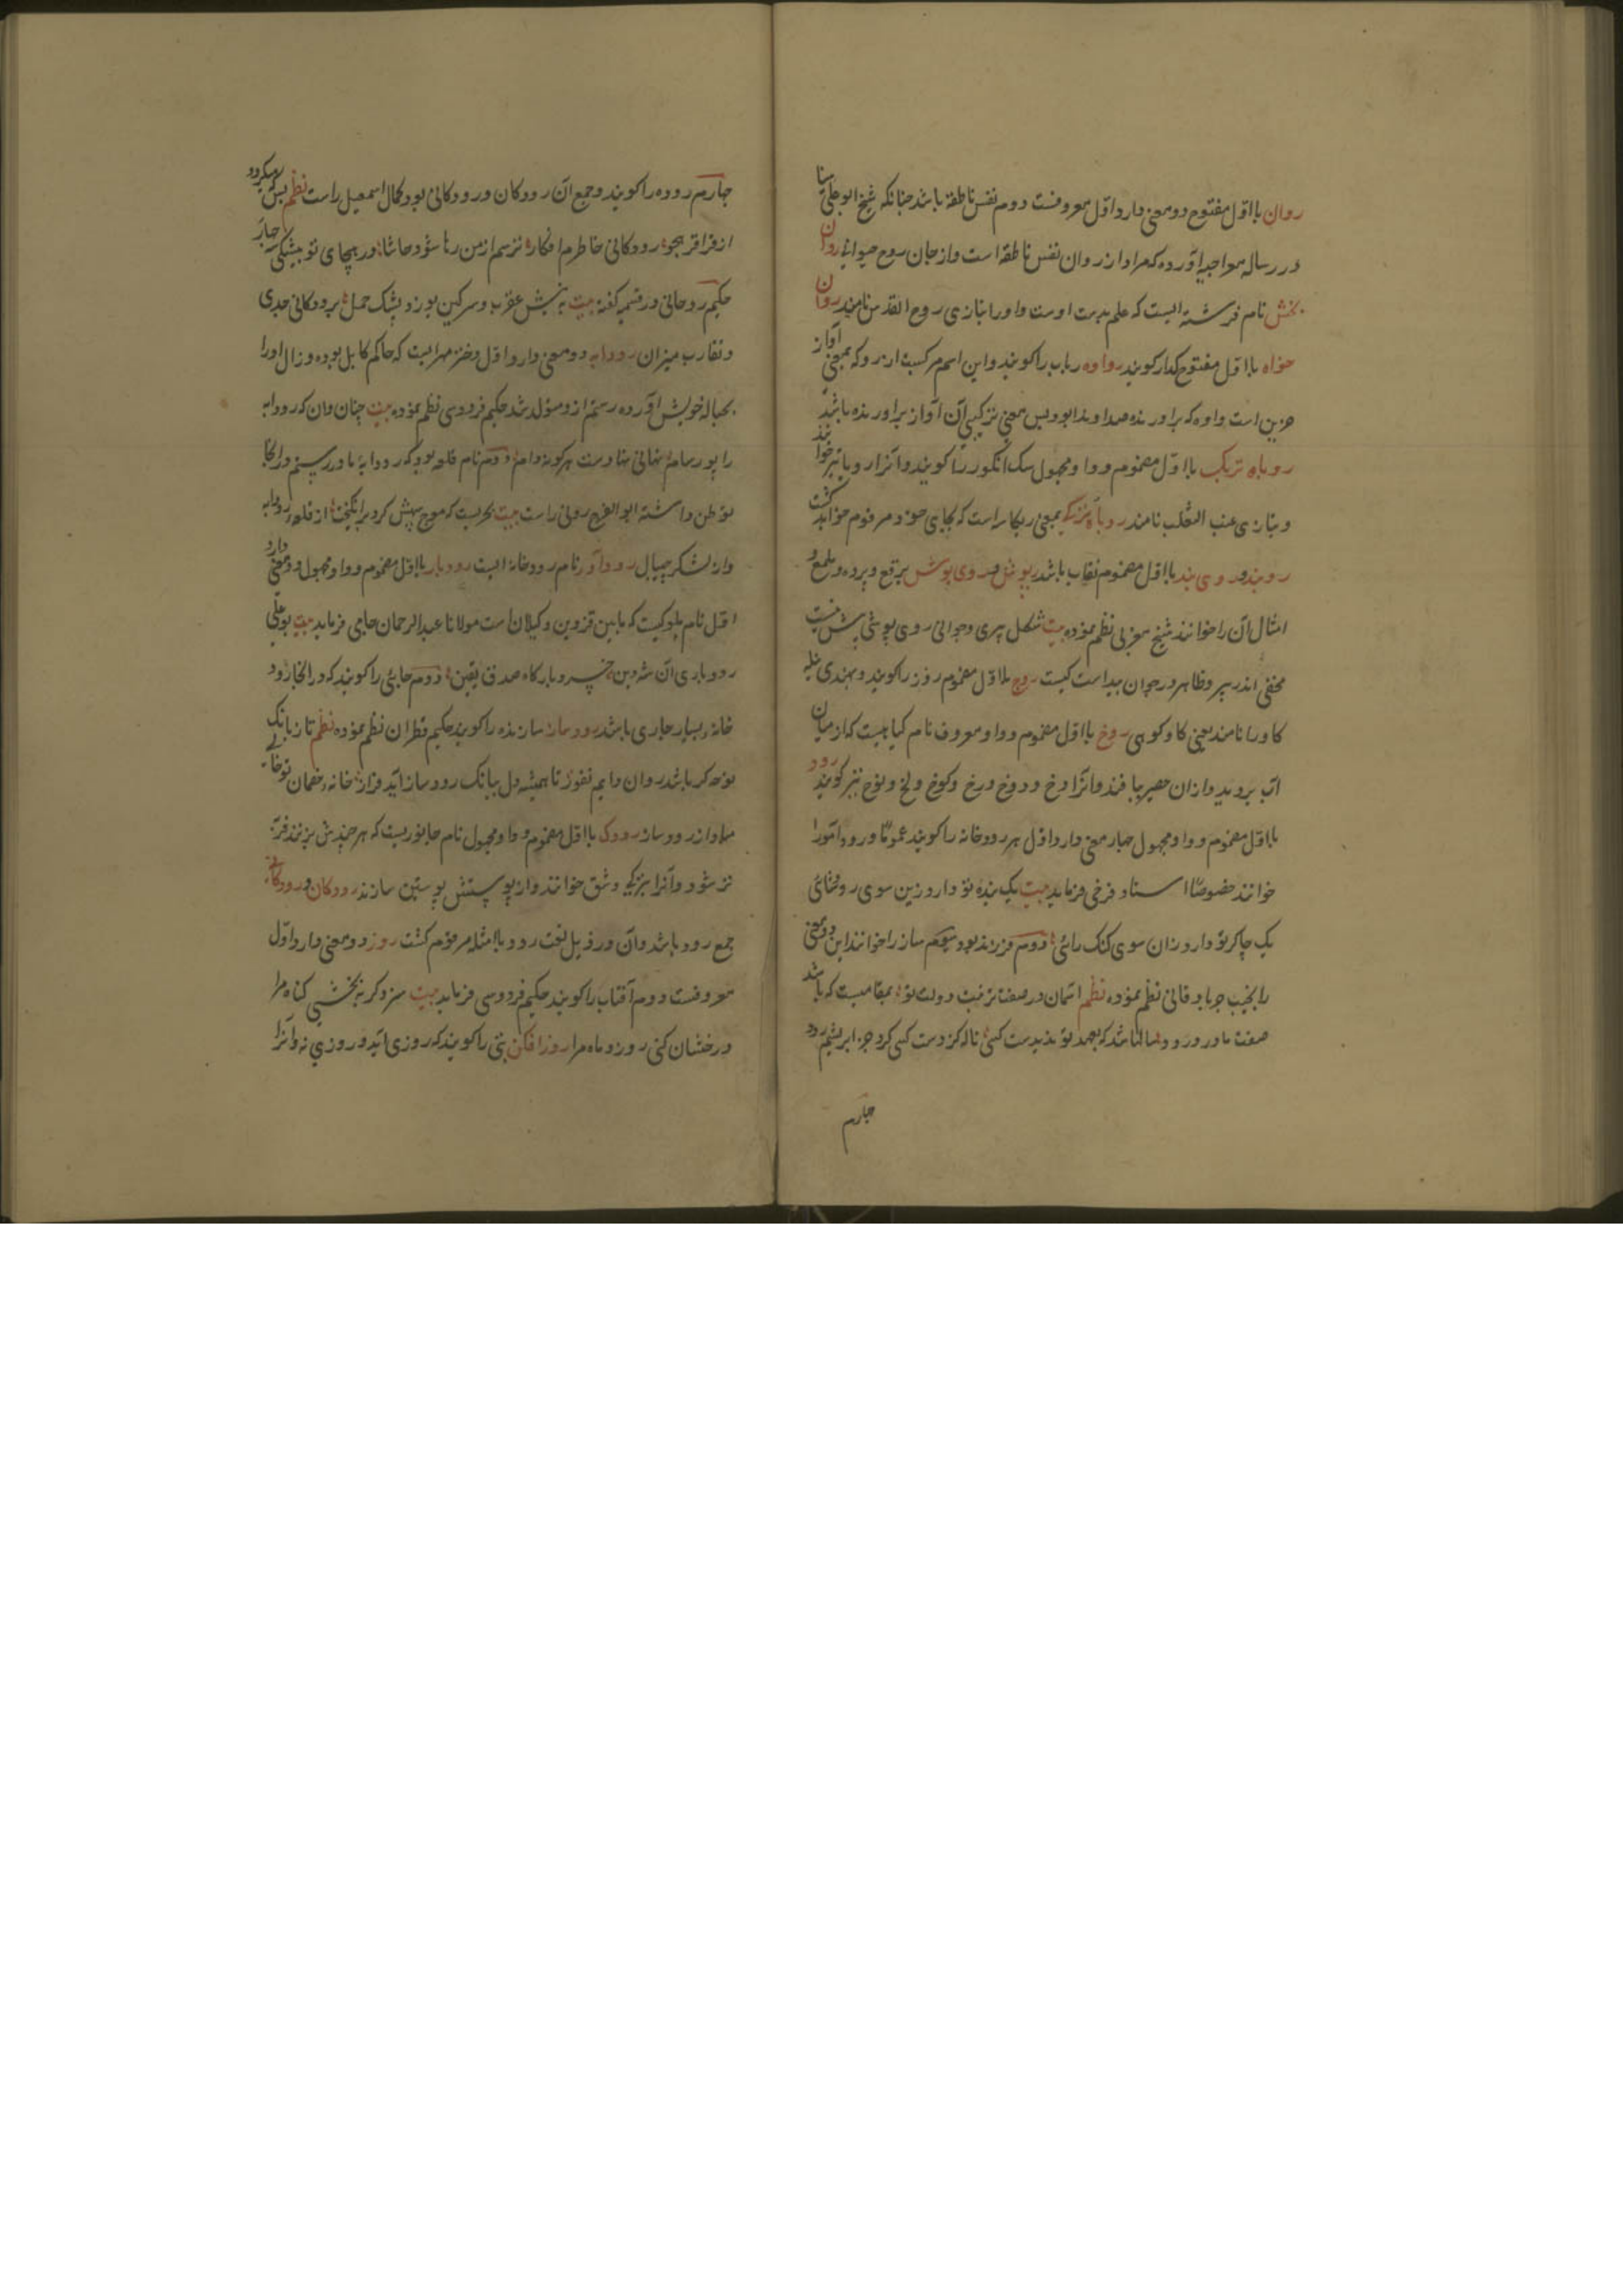 روان با اول مفتوح دو معنی دارد اول معروفست دوم نفس ناطقه باشد چنانکه شیخ ابو علی سینا
در رساله معراجیه آورده که مراد از روان نفس ناطقه است و از جان روح حیوانی روان
بخش نام فرشته ایست که علم بدست اوست و او را بتازی روح القدس نامند روان
خواه با اول مفتوح کدا را کویند رواوه رباب را کویند و این اسم مرکبست از رو که بمعنی آواز
حزین است و اوه که براورنده صدا و ندا بود پس معنی ترکیبی آن آواز براورنده باشد
روباه تربک با اول مضموم و واو مجهول سک انکور را کویند و آنرا روباتیر خوانند
و بتازی عنب الثعلب نامند روباه بمعنی ریکاسه است که بجای خود مرقوم خواهد کشت
روبند و روی بند با اول مضموم نقاب باشد روپوش و روی پوش برقع و پرده و ملمع و
امثال آن را خوانند شیخ مغربی نظم نموده بیت شکل پیری و جوانی روی پوشی بیش نیست
مخفی اندر پیر و ظاهر در جوان پیداست کیست روج با اول مضموم روز را کویند و بهندی نیله
کاو را نامند یعنی کاو کوهی روخ با اول مضموم و واو معروف نام کیاهیست که از میان
آب بروید و از ان حصیر بافند و آنرا وخ و دوخ و رخ و کوخ و لخ و لوخ نیز کویند رود
با اول مضموم و واو مجهول چهار معنی دارد اول هر رودخانه را کویند عموما و رود آمو را
خوانند خصوصا استاد فرخی فرماید بیت یک بنده تو دارد زین سوی رود خانی
یک چاکر تو دارد زان سوی کنک رائی دوم فرزند بود سوم ساز را خوانند این دو معنی
را نجیب جربادقانی نظم نموده نظم آسمان در صفت تربیت دولت تو بمقامیست که باشد
صفت مادر و رود سالها شد که بعهد تو ندیدست کسی ناله کز دست کسی کرد جز ابریشم رود
چهارم
چهارم روده را کویند و جمع آن رودکان و رودکانی بود کمال اسمعیل راست نظم بس که میکردد
از قراقر هجو رودکانی خاطرم افکار ترسم از من رها شود حاشا در هجای تو بیشکی جار
حکیم روحانی در قسمیه کفته بیت به نیش عقرب و سرکین بوز و پشک حمل برودکانی جدی
و تقارب میزان رودابه دو معنی دارد اول دختر مهرابست که حاکم کابل بوده و زال او را
بحباله خویش آورده رستم از و متولد شد حکیم فردوسی نظم نموده بیت چنان دان که رودابه
را پور سام نهانی نهادست هرکونه دام دوم نام قلعه بود که رودابه مادر رستم در انجا
توطن داشته ابو الفرج رونی راست بیت بحریست که موج هیبتش کرد برانکیخت از قلعه رودابه
و از لشکر جیپال رودآور نام رودخانه ایست رودبار با اول مضموم و واو مجهول دو معنی دارد
اول نام بلوکیست که مابین قزوین و کیلان است مولانا عبدالرحمان جامی فرماید بیت بو علی
رودباری آن شه دین خسرو بارکاه صدق یقین دوم جائی را کویند که در انجا رود
خانه بسیار جاری باشد رودساز سازنده را کویند حکیم قطران نظم نموده نظم تا زبانک
نوحه کر باشد روان دایم نفور تا همیشه دل ببانک رودساز آید فراز خانه خصمان تو خالی
مباد از رودساز رودک با اول مضموم و واو مجهول نام جانوریست که هر چندش بزنند فربه
تر شود و آنرا بترکی وشق خوانند و از پوستش پوستین سازند رودکان و رودکانی
جمع رود باشد و آن در ذیل لغت رود با امثله مرقوم کشت روز دو معنی دارد اول
معروفست دوم آفتاب را کویند حکیم فردوسی فرماید بیت سزد کر ببخشی کناه مرا
درخشان کنی روز و ماه مرا روز افکن تبی را کویند که روزی آید و روزی نه و آنرا